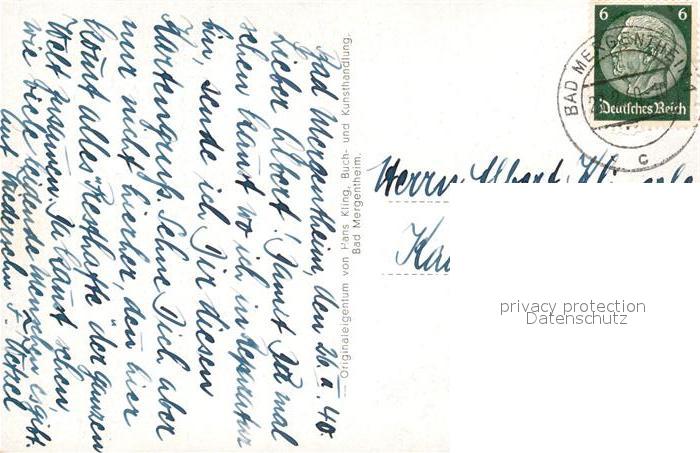 Bad Mergentheim, den 26.II.40.
Lieber Albert! Damit Du mal
sehen kannst wo ich in Reparatur
bin, sende ich Dir diesen
Kartengruß. Sehne Dich aber
nur nicht hierher, denn hier
kommt alles "Preßhafte" der ganzen
Welt zusammen. Du glaubst
wie viele leidende Menschen es gibt.
Auf Wiedersehn
Originaleigentum von Hans Kling, Buch- und Kunsthandlung,
Bad Mergentheim.
6 6
Deutsches Reich
BAD MERGENTHEIM
c
Herrn Albert
privacy protection
Datenschutz